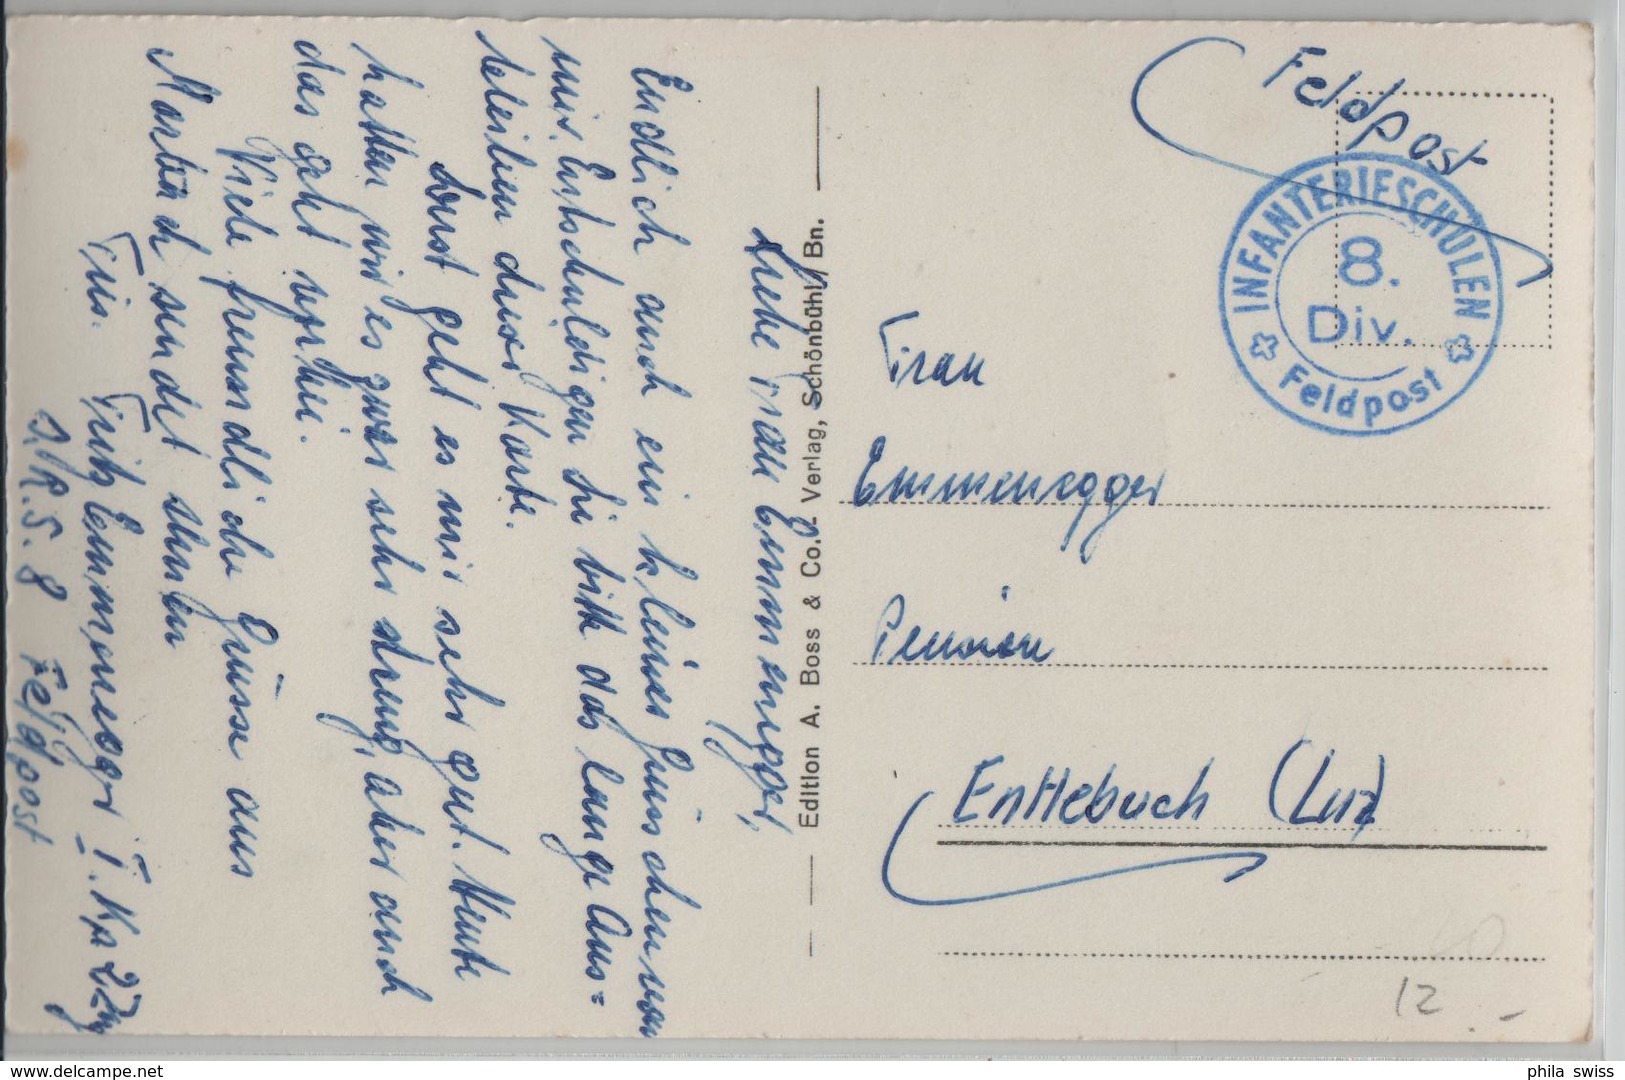 Liebe Frau Emmenegger,
Endlich auch ein kleines Grüsschen von
mir. Entschuldigen Sie bitte das lange Aus=
bleiben dieser Karte.
Sonst geht es mir sehr gut. Heute
hatten wir es zwar sehr streng, aber auch
das geht vorbei.
Viele freundliche Grüsse aus
Marbach sendet Ihnen
Füs. Fritz Emmenegger I. Kp 2. Zug
I.R.S. 8 Feldpost
Edition A. Boss & Co. - Verlag, Schönbühl/Bn.
Feldpost
INFANTERIESCHULEN
8.
Div.
Feldpost
Frau
Emmenegger
Pension
Entlebuch (Luz)
12.-
phila swiss
www.delcampe.net